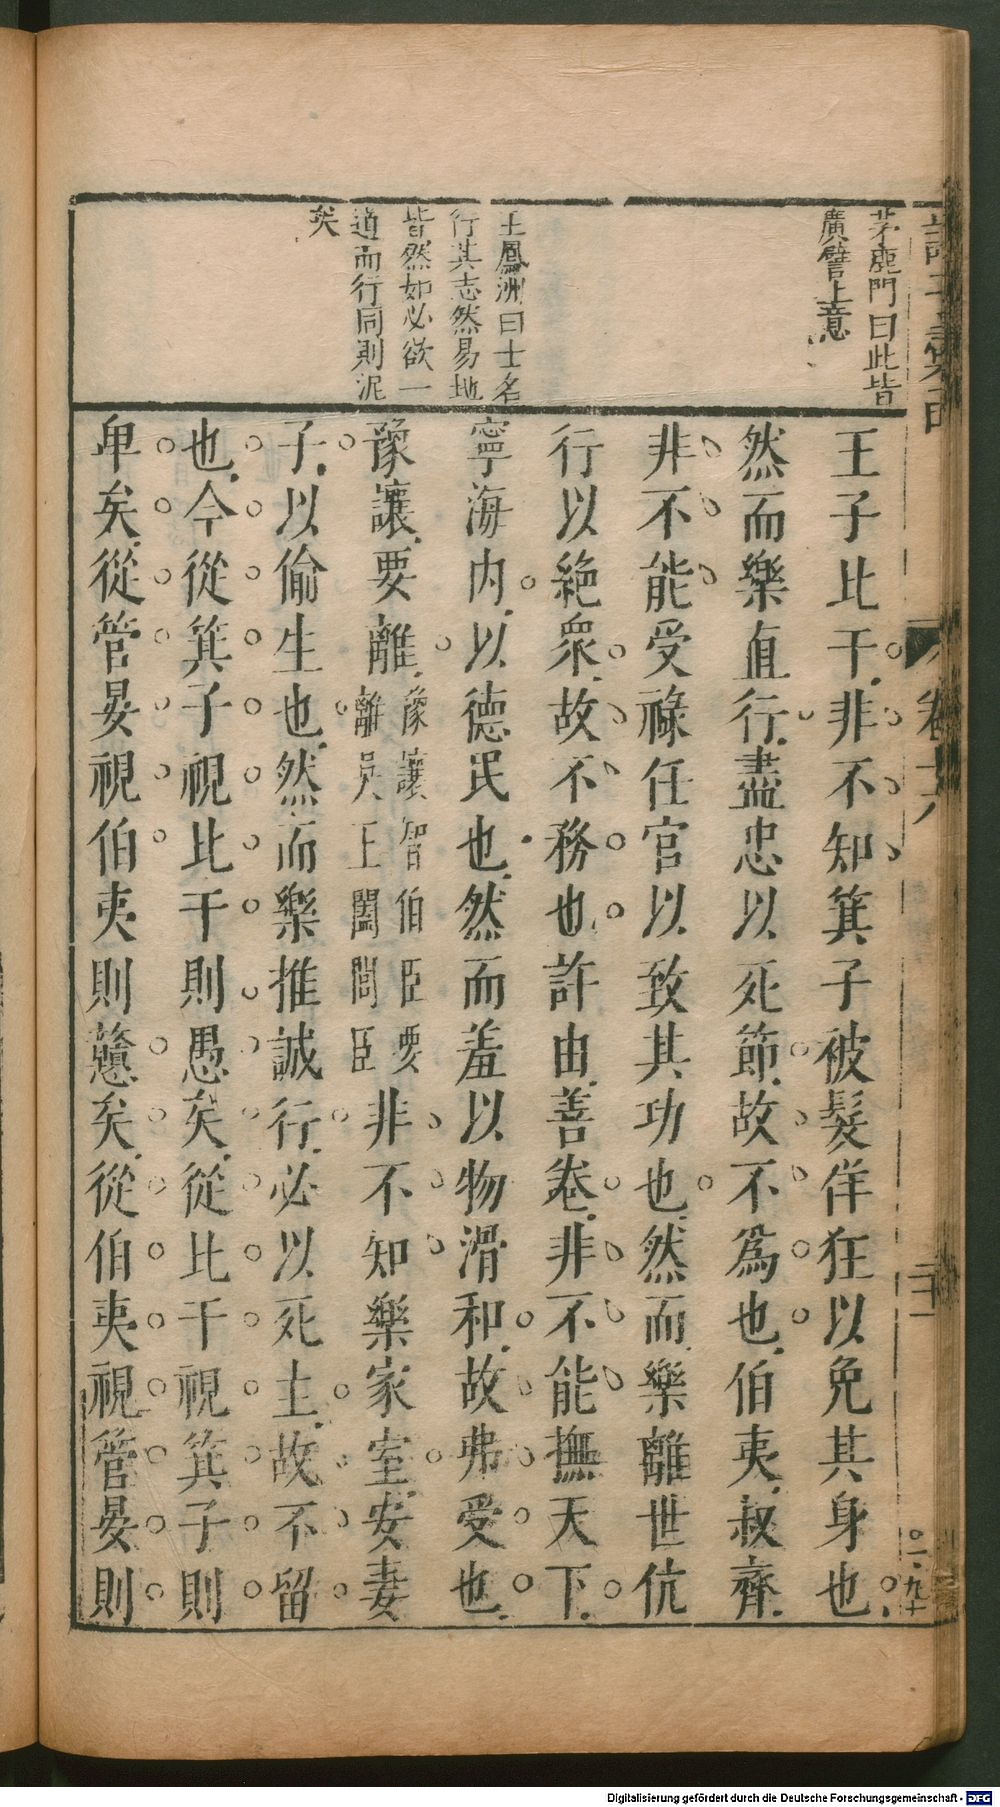 茅鹿門曰此皆
廣譬上意
王鳳洲曰士名
行其志然易地
皆然如必欲一
道而行同則泥
矣
王子比干非不知箕子被髮佯狂以免其身也
然而樂直行盡忠以死節故不爲也伯夷叔齊
非不能受祿任官以致其功也然而樂離世伉
行以絕衆故不務也許由善卷非不能撫天下
寧海內以德民也然而羞以物滑和故弗受也
豫讓要離豫讓智伯臣要離吳王闔閭臣非不知樂家室安妻
子以偷生也然而樂推誠行必以死主故不留
也今從箕子視比干則愚矣從比干視箕子則
卑矣從管晏視伯夷則戇矣從伯夷視管晏則
卷十八
二十一
Digitalisierung gefördert durch die Deutsche Forschungsgemeinschaft - DFG